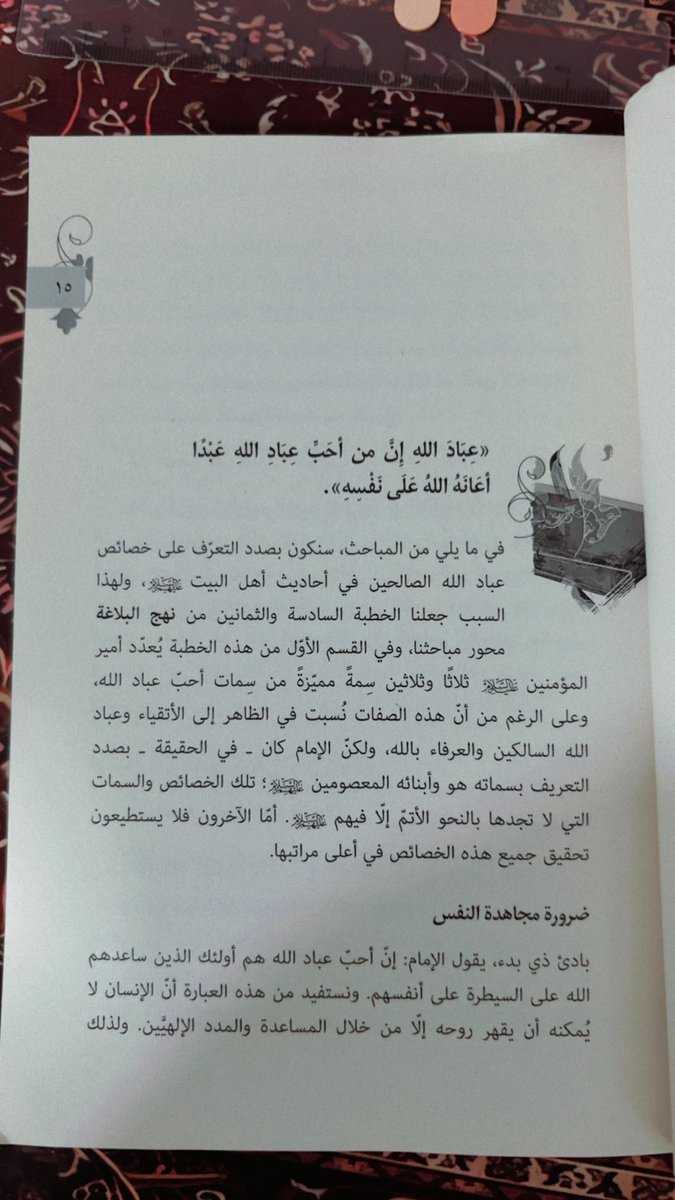 ١٥
«عِبَادَ اللهِ إِنَّ من أحَبِّ عِبَادِ اللهِ عَبْدًا
أعَانَهُ اللهُ عَلَى نَفْسِهِ».
في ما يلي من المباحث، سنكون بصدد التعرّف على خصائص
عباد الله الصالحين في أحاديث أهل البيت عليهم السلام، ولهذا
السبب جعلنا الخطبة السادسة والثمانين من نهج البلاغة
محور مباحثنا، وفي القسم الأوّل من هذه الخطبة يُعدّد أمير
المؤمنين عليه السلام ثلاثًا وثلاثين سِمةً مميّزةً من سِمات أحبّ عباد الله،
وعلى الرغم من أنّ هذه الصفات نُسبت في الظاهر إلى الأتقياء وعباد
الله السالكين والعرفاء بالله، ولكنّ الإمام كان ـ في الحقيقة ـ بصدد
التعريف بسماته هو وأبنائه المعصومين عليهم السلام؛ تلك الخصائص والسمات
التي لا تجدها بالنحو الأتمّ إلّا فيهم عليهم السلام. أمّا الآخرون فلا يستطيعون
تحقيق جميع هذه الخصائص في أعلى مراتبها.
ضرورة مجاهدة النفس
بادئ ذي بدء، يقول الإمام: إنّ أحبّ عباد الله هم أولئك الذين ساعدهم
الله على السيطرة على أنفسهم. ونستفيد من هذه العبارة أنّ الإنسان لا
يُمكنه أن يقهر روحه إلّا من خلال المساعدة والمدد الإلهيَّين. ولذلك